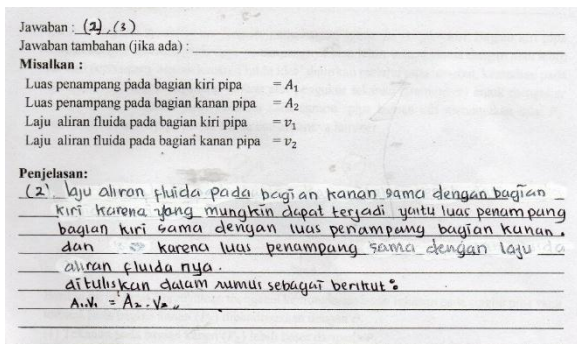 Jawaban : (2), (3)
Jawaban tambahan (jika ada) :
Misalkan :
Luas penampang pada bagian kiri pipa = A₁
Luas penampang pada bagian kanan pipa = A₂
Laju aliran fluida pada bagian kiri pipa = v₁
Laju aliran fluida pada bagian kanan pipa = v₂
Penjelasan:
(2) laju aliran fluida pada bagian kanan sama dengan bagian
kiri karena yang mungkin dapat terjadi yaitu luas penampang
bagian kiri sama dengan luas penampang bagian kanan.
dan karena luas penampang sama dengan laju
aliran fluida nya.
dituliskan dalam rumus sebagai berikut :
A₁.V₁ = A₂.V₂